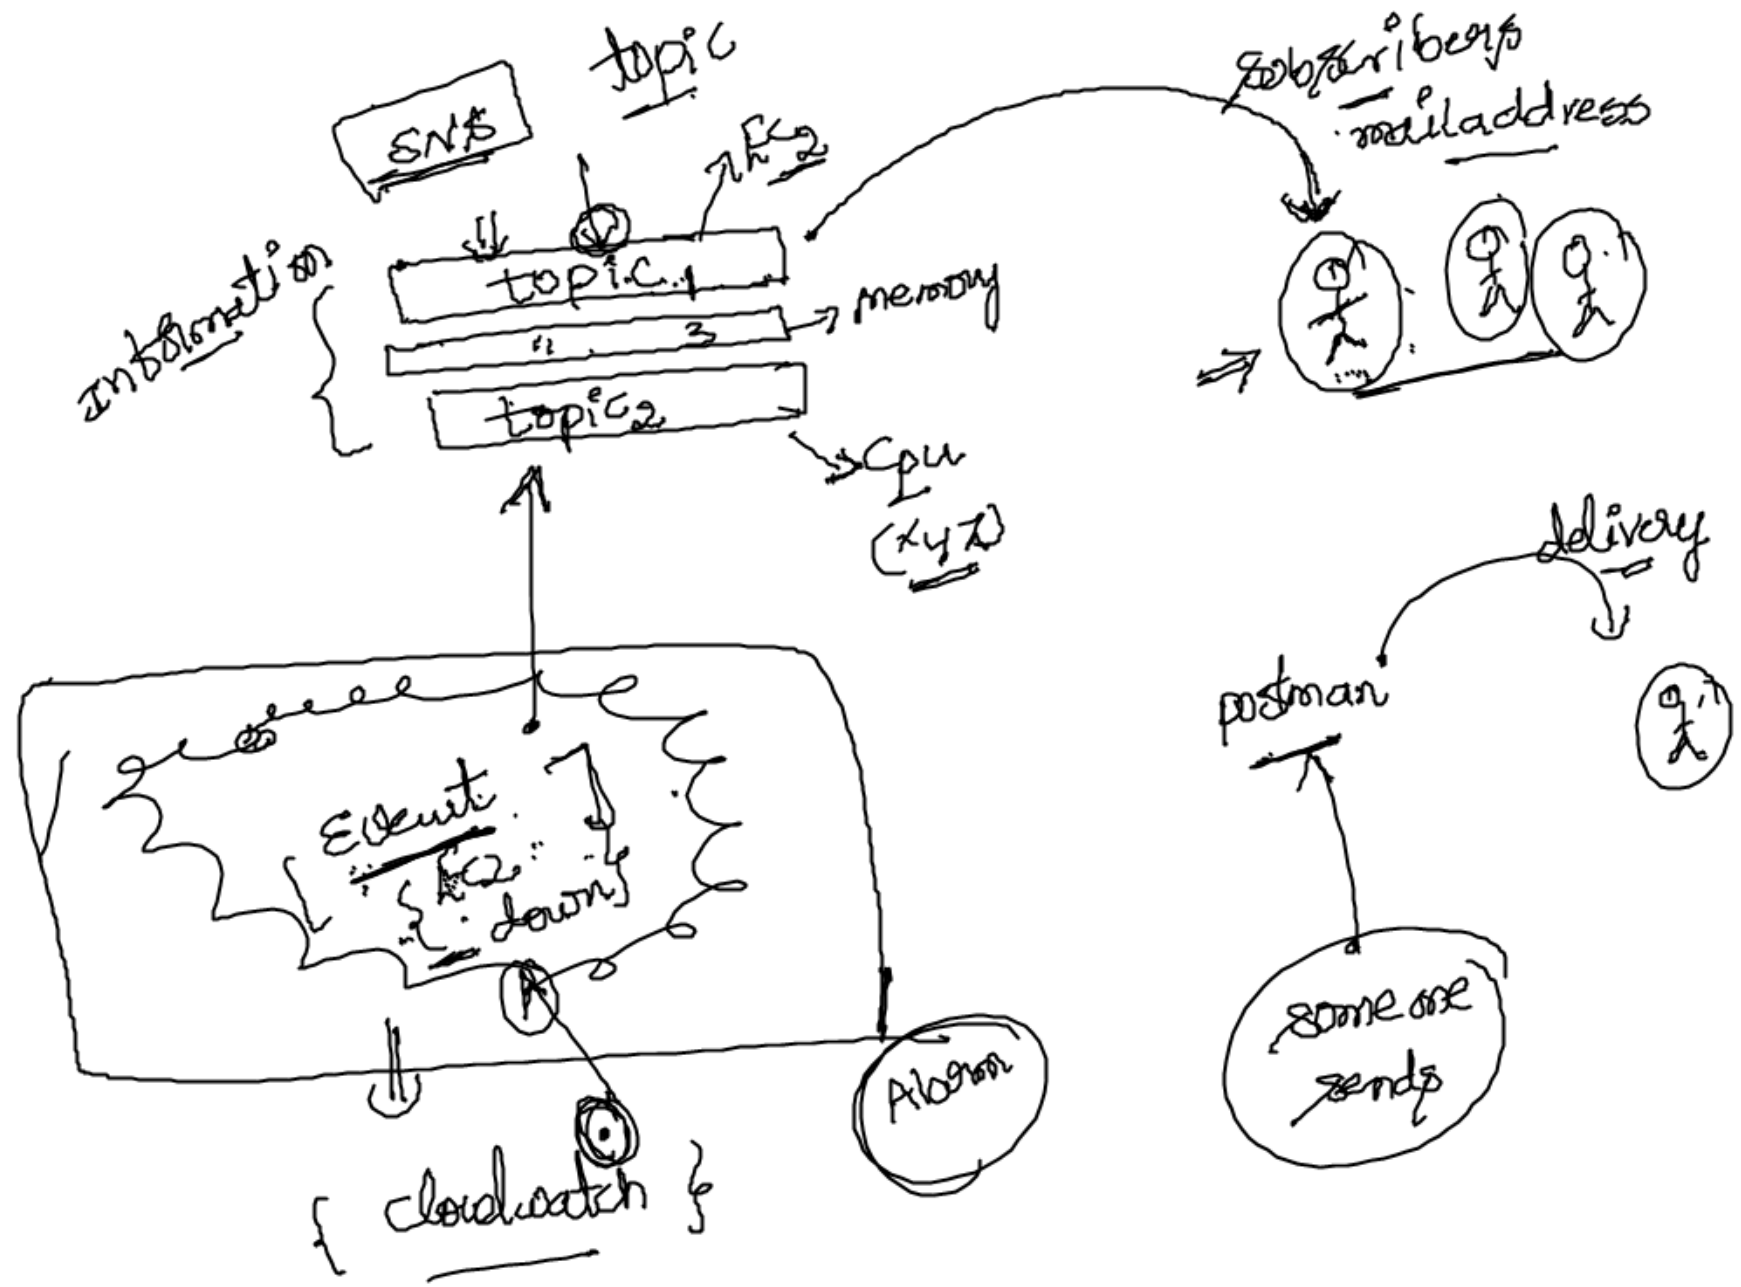 topic
SNS
EC2
subscribers
mailaddress
Information
topic 1
memory
" 3
topic 2
cpu
(xyz)
delivery
postman
Event
down
Alarm
someone
sends
{ cloudwatch }